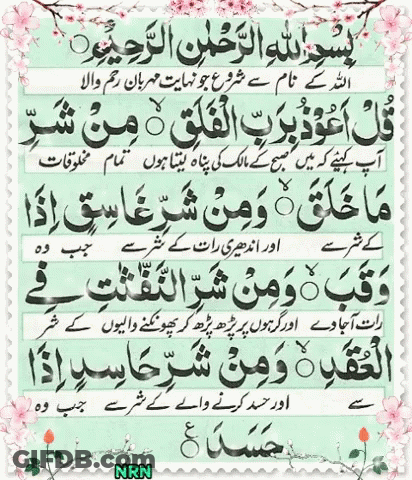 بِسْمِ اللهِ الرَّحْمٰنِ الرَّحِيْمِ ○
اللہ کے نام سے شروع جو نہایت مہربان رحم والا
قُلْ اَعُوْذُ بِرَبِّ الْفَلَقِ ○ مِنْ شَرِّ
آپ کہیئے کہ میں صبح کے مالک کی پناہ لیتا ہوں تمام مخلوقات
مَا خَلَقَ ○ وَمِنْ شَرِّ غَاسِقٍ اِذَا
کے شر سے اور اندھیری رات کے شر سے جب وہ
وَقَبَ ○ وَمِنْ شَرِّ النَّفّٰثٰتِ فِے
رات آجاوے اور گرہوں پر پڑھ پڑھ کر پھونکنے والیوں کے شر
الْعُقَدِ ○ وَمِنْ شَرِّ حَاسِدٍ اِذَا
سے اور حسد کرنے والے کے شر سے جب وہ
حَسَدَ ○ ع
GIFDB.com
NRN